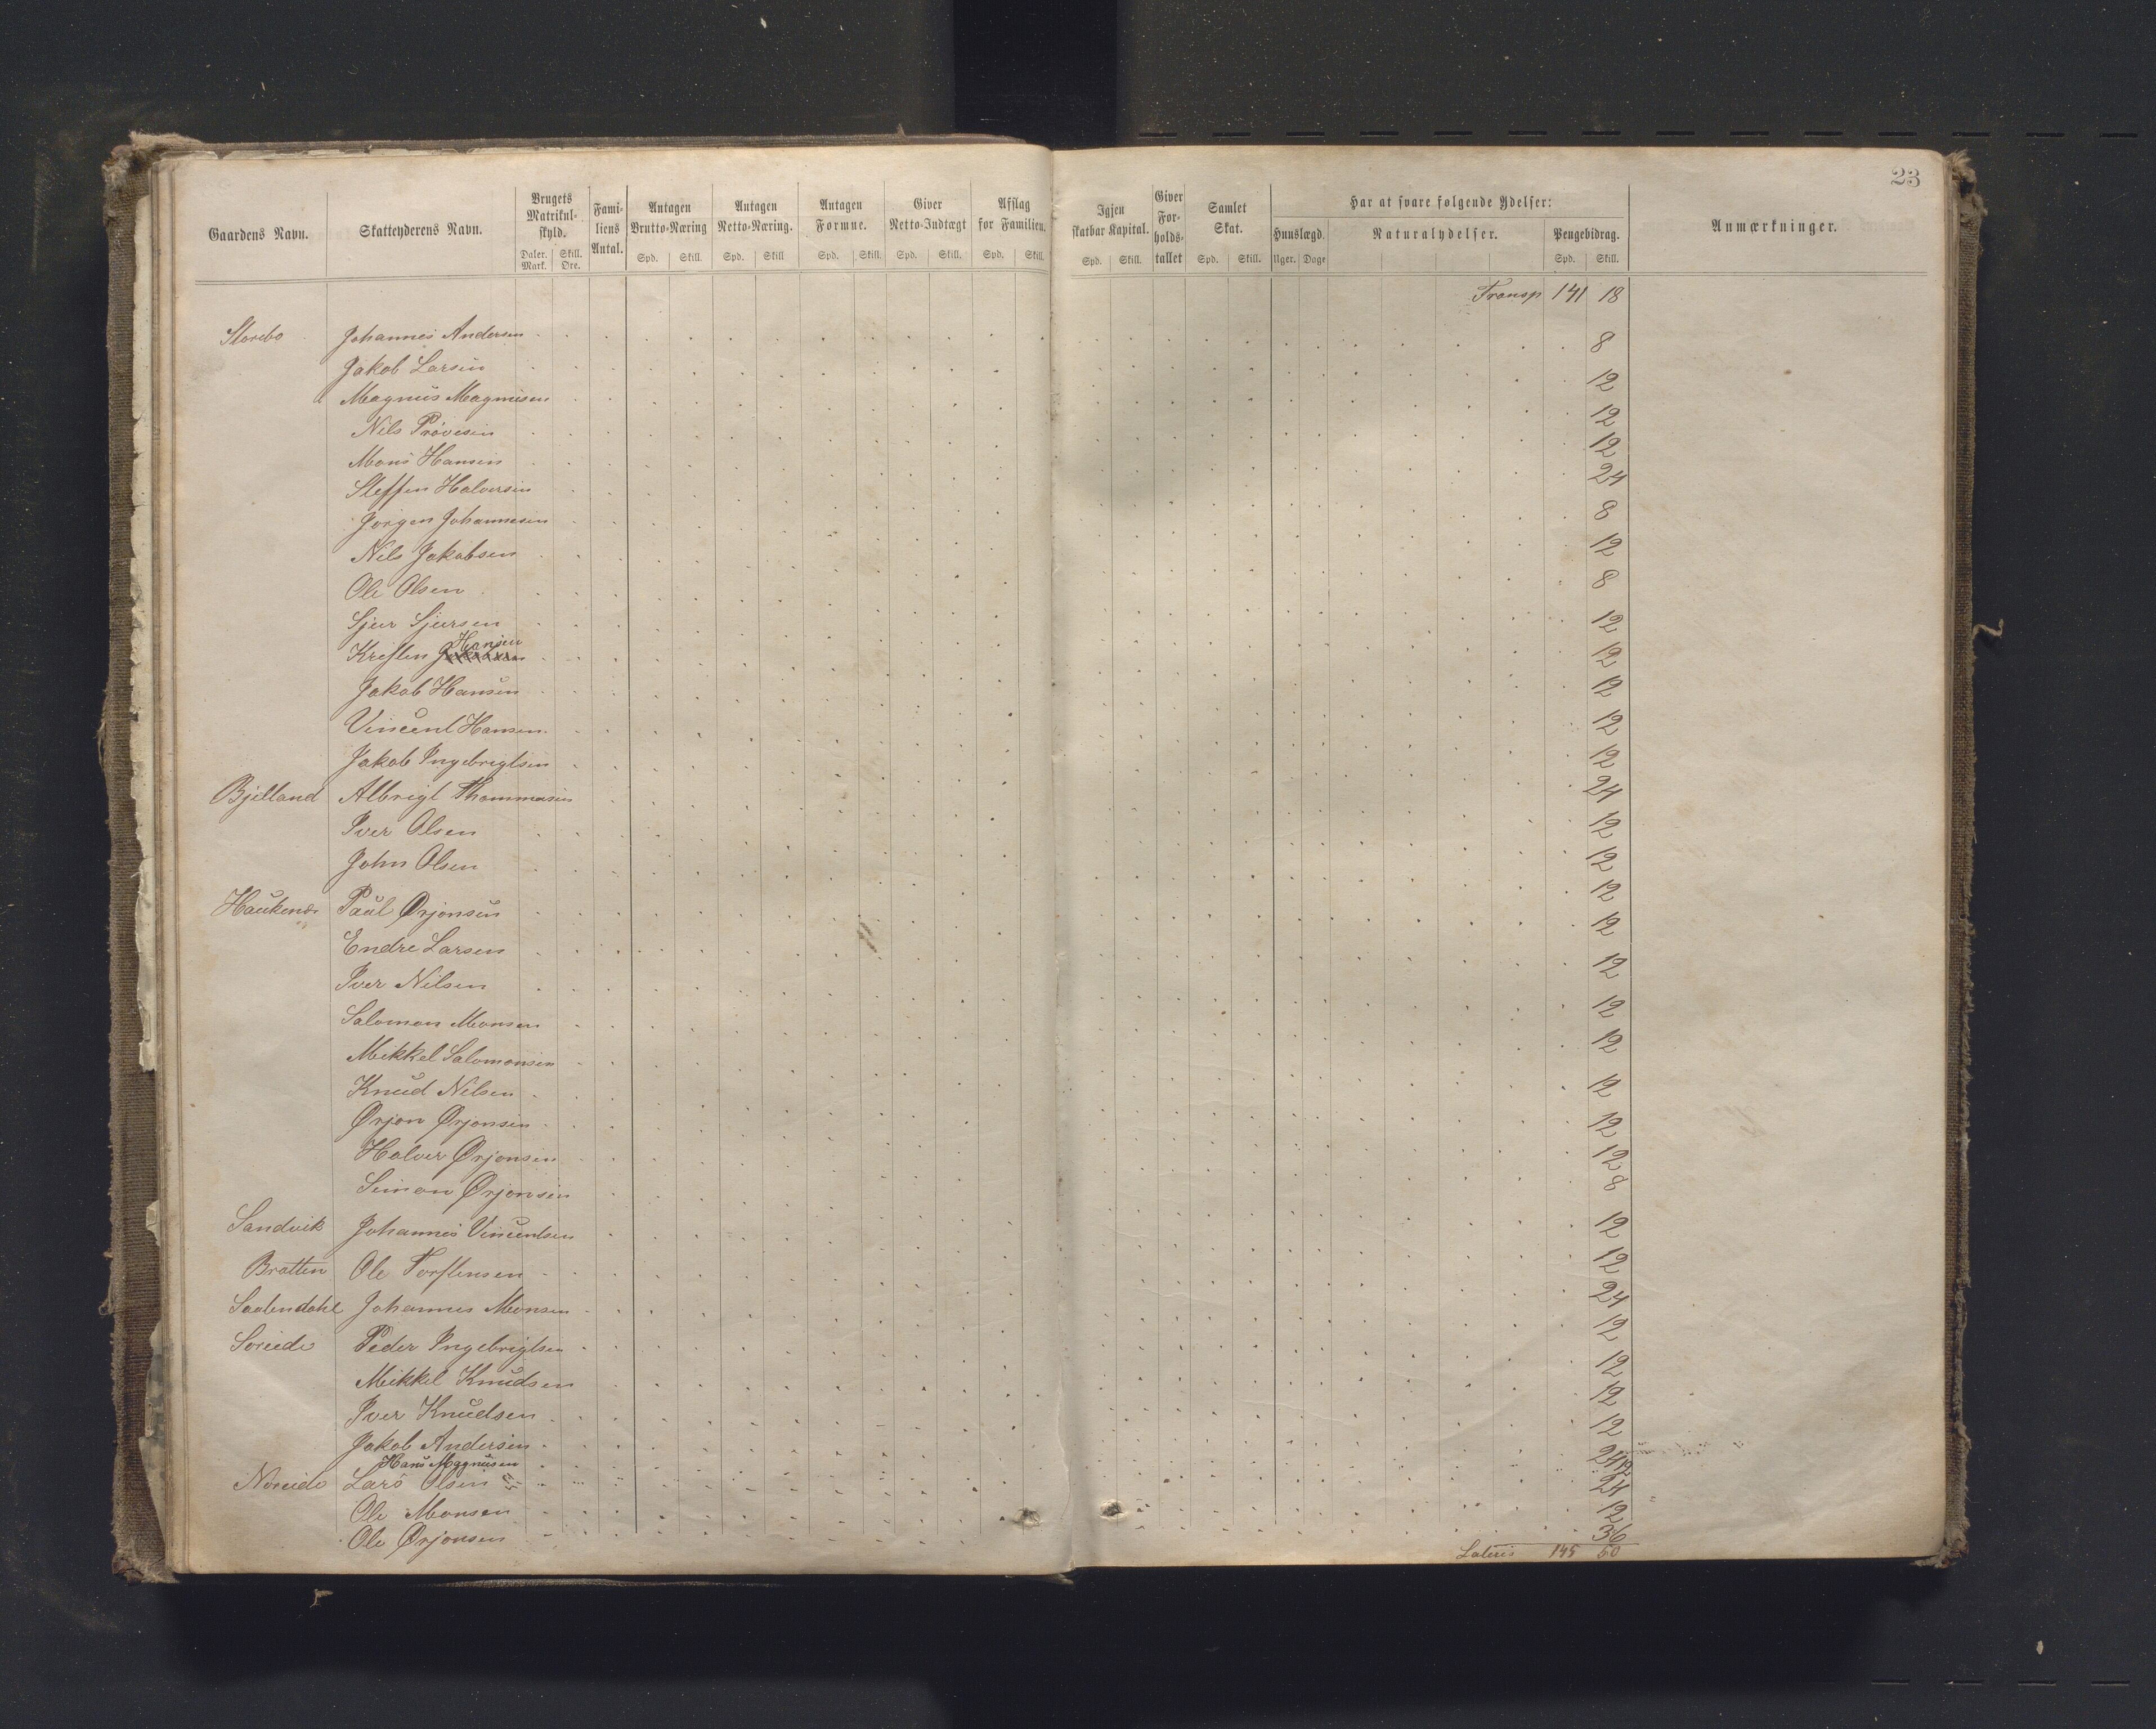 23
Gaardens Navn. Skatteyderens Navn. Brugets Matrikul-skyld. Daler. Mark. Skill. Øre. Fami-liens Antal. Antagen Brutto-Næring Spd. Skill. Antagen Netto-Næring. Spd. Skill Antagen Formue. Spd. Skill. Giver Netto-Indtægt Spd. Skill. Afslag for Familien. Spd. Skill. Igjen skatbar Kapital. Spd. Skill. Giver For-holds-tallet Samlet Skat. Spd. Skill. Har at svare følgende Ydelser: Huuslægd. Uger. Dage Naturalydelser. Pengebidrag. Spd. Skill. Anmærkninger.
Transp 141 18
Storebo Johannes Andersen 8
Jakob Larsen 12
Magnus Magnusen 12
Nils Prøvesen 12
Mons Hansen 24
Steffen Halversen 8
Jørgen Johannesen 12
Nils Jakobsen 8
Ole Olsen 12
Sjur Sjursen 12
Kresten Hansen 12
Jakob Hansen 12
Vincent Hansen 12
Jakob Ingebrigtsen 24
Bjelland Albrigt Thommasen 12
Iver Olsen 12
John Olsen 12
Haukenæs Paul Ørjansen 12
Endre Larsen 12
Iver Nilsen 12
Salomon Monsen 12
Mikkel Salomonsen 12
Knud Nilsen 12
Ørjan Ørjansen 12
Halver Ørjansen 8
Simon Ørjansen 12
Sandvik Johannes Vincentsen 12
Bratten Ole Torstensen 24
Saabendahl Johannes Monsen 12
Søreide Peder Ingebrigtsen 12
Mikkel Knudsen 12
Iver Knudsen 12
Jakob Andersen 24
Hans Magnusen 12
Noreide Lars Olsen 24
Ole Monsen 12
Ole Ørjansen 36
Lateris 145 50